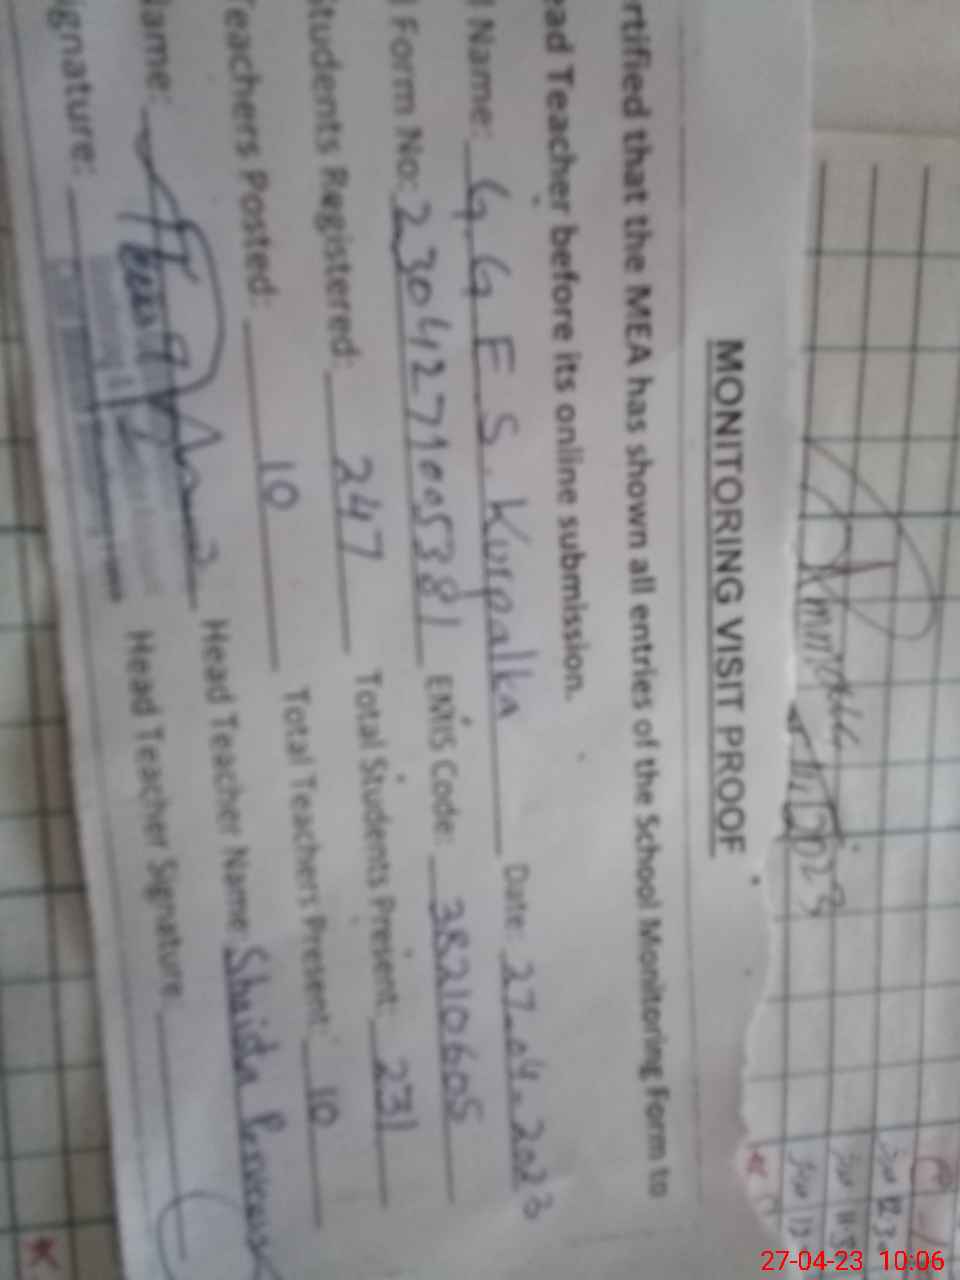 MONITORING VISIT PROOF
rtified that the MEA has shown all entries of the School Monitoring Form to
ead Teacher before its online submission.
l Name: G.G.E.S. Kurpalka Date: 27-04-2023
l Form No: 23041271005381 EMIS Code: 38210605
Students Registered: 247 Total Students Present: 231
Teachers Posted: 10 Total Teachers Present: 10
Name: Head Teacher Name: Shaida Perveen
ignature: Head Teacher Signature:
27-04-23 10:06